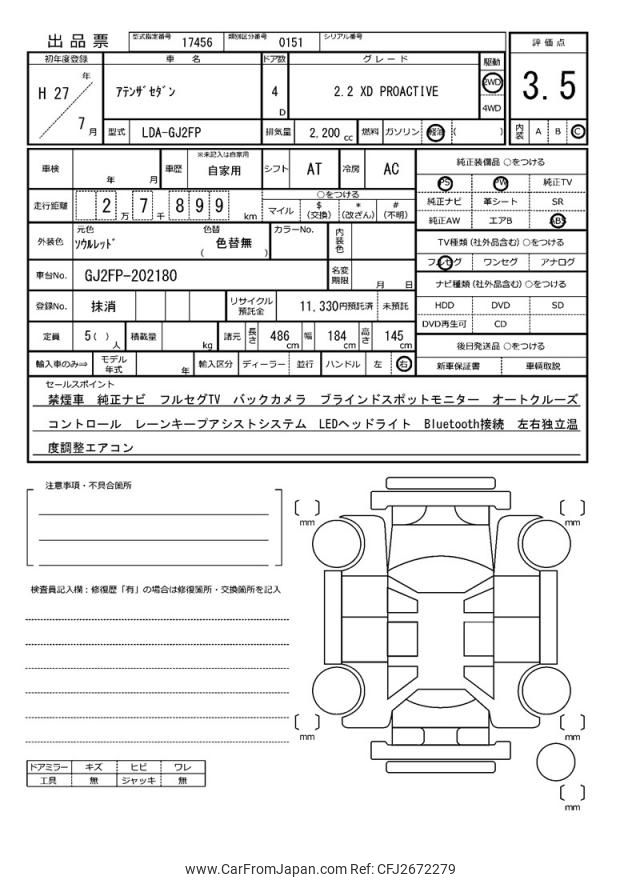 出品票 型式指定番号 17456 類別区分番号 0151 シリアル番号
評価点
3.5
内装 A B C
初年度登録 車名 ドア数 グレード 駆動
H 27 年 7 月
アテンザセダン 4 D 2.2 XD PROACTIVE 2WD 4WD
型式 LDA-GJ2FP 排気量 2,200 cc 燃料 ガソリン 軽油 ( )
車検 年 月 車歴 ※未記入は自家用 自家用 シフト AT 冷房 AC
走行距離 2万 7千 899 km ○をつける マイル $(交換) *(改ざん) #(不明)
外装色 元色 ソウルレッド 色替 ( 色替無 ) カラーNo. 内装色
車台No. GJ2FP-202180 名変期限 月 日
登録No. 抹消 リサイクル預託金 11,330円預託済 未預託
定員 5( )人 積載量 kg 諸元 長さ 486 cm 幅 184 cm 高さ 145 cm
輸入車のみ⇒ モデル年式 年 輸入区分 ディーラー 並行 ハンドル 左 右
純正装備品 ○をつける
PS PW 純正TV
純正ナビ 革シート SR
純正AW エアB ABS
TV種類(社外品含む)○をつける
フルセグ ワンセグ アナログ
ナビ種類(社外品含む)○をつける
HDD DVD SD
DVD再生可 CD
後日発送品 ○をつける
新車保証書 車輌取説
セールスポイント
禁煙車 純正ナビ フルセグTV バックカメラ ブラインドスポットモニター オートクルーズ
コントロール レーンキープアシストシステム LEDヘッドライト Bluetooth接続 左右独立温
度調整エアコン
注意事項・不具合箇所
検査員記入欄：修復歴「有」の場合は修復箇所・交換箇所を記入
mm mm
mm mm
mm
ドアミラー キズ ヒビ ワレ
工具 無 ジャッキ 無
www.CarFromJapan.com Ref: CFJ2672279